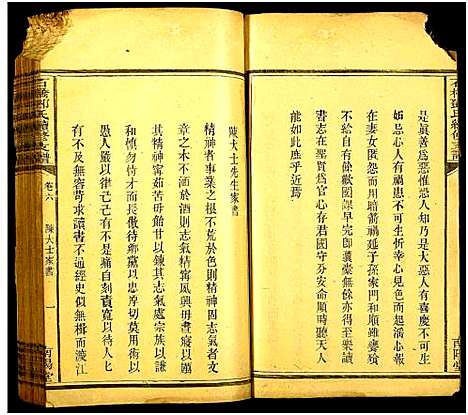 是眞善爲惡惟恐人知乃是大惡人有喜慶不可生
妬忌心人有禍患不可生忻幸心見色而起淫心報
在妻女匿怨而用暗箭禍延子孫家門和順雖饔飧
不繼亦有餘歡國課早完卽囊橐無餘亦得至樂讀
書志在聖賢爲官心存君國守分安命順時聽天人
能如此庶乎近焉
陳大士先生家書
精神者事業之根不荒於色則精神固志氣者文
章之木不涵於酒則志氣清精神寓風興毋避寢以厲
其精神甯茹苦毋飴甘以鍊其志氣處宗族以謙
和而慎勿恃才而長傲待鄉黨以忠厚切莫用術
而害人嚴以律己己有不是痛自刻責恕以待人人
有不及無容苛求讀書不通經史似無楫而渡江
石橋鄧氏續修支譜
卷六
陳大士家書
一
南陽堂
石橋鄧氏續修支譜
南陽堂